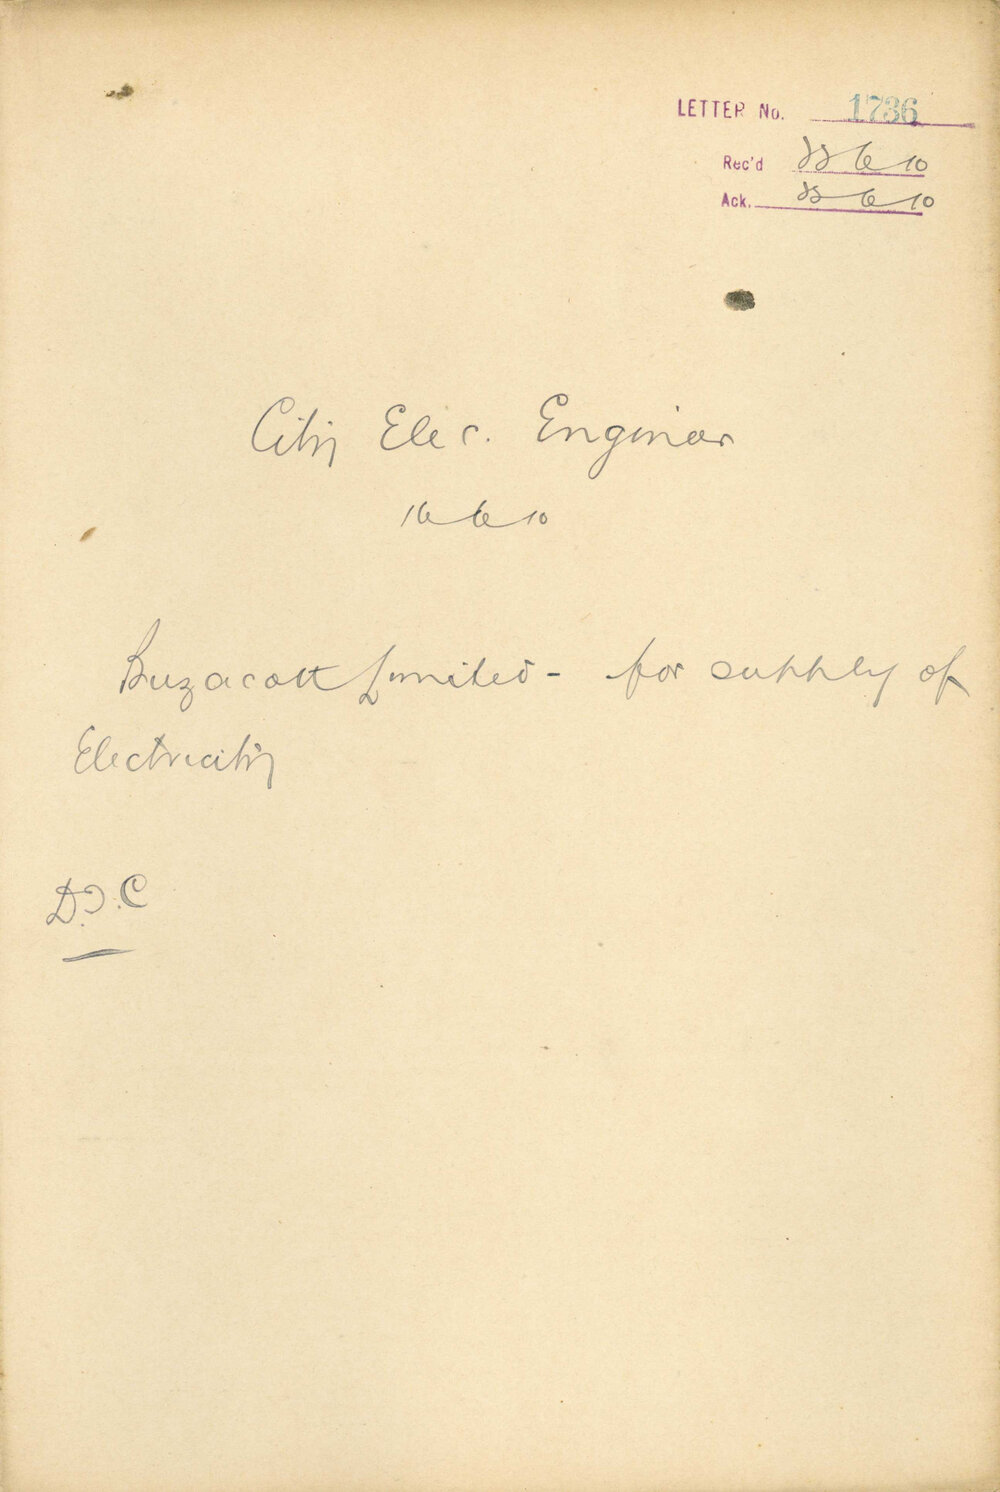 LETTER No. 1736
Rec'd 22 6 10
Ack. 22 6 10
City Elec. Engineer
16 6 10
Buzacott Limited - for supply of
Electricity
D.J.C